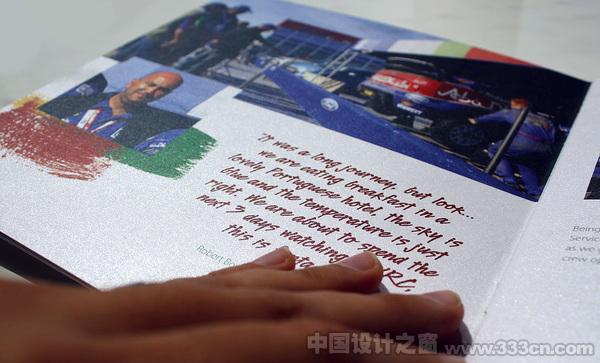 "It was a long journey, but look...
we are eating breakfast in a
lovely Portuguese hotel, the sky is
blue and the temperature is just
right. We are about to spend the
next 3 days watching
this is
Robert
Being
Service
as we
crew op
中国设计之窗 www.333cn.com